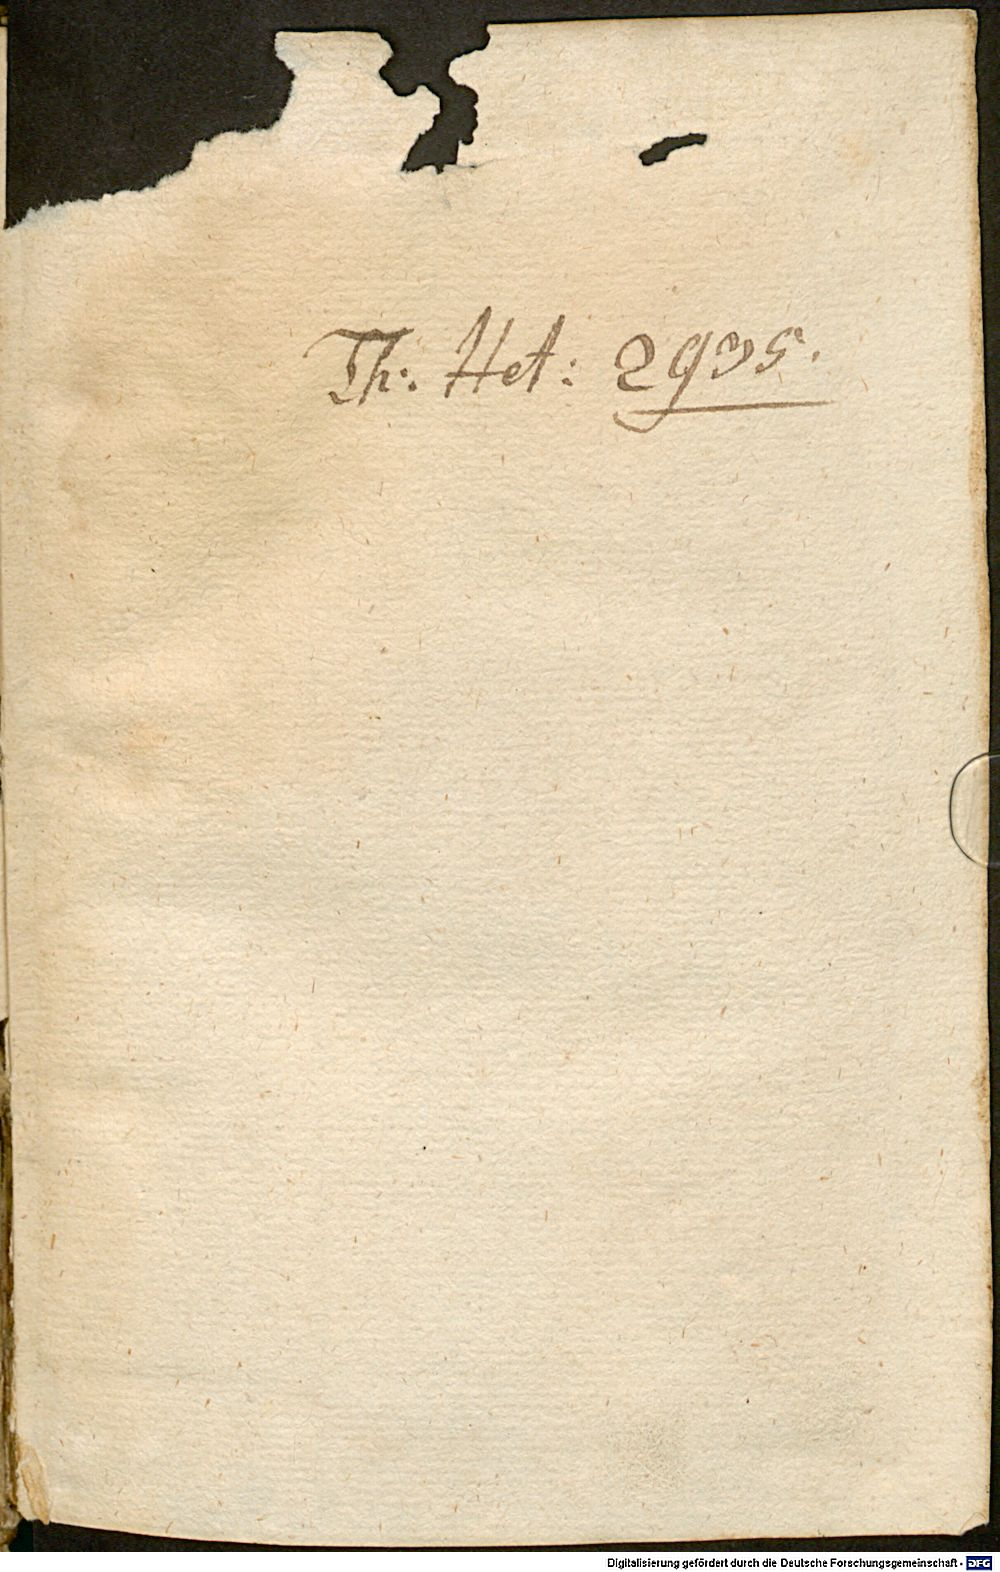 Th: Het: 2935.
Digitalisierung gefördert durch die Deutsche Forschungsgemeinschaft - DFG